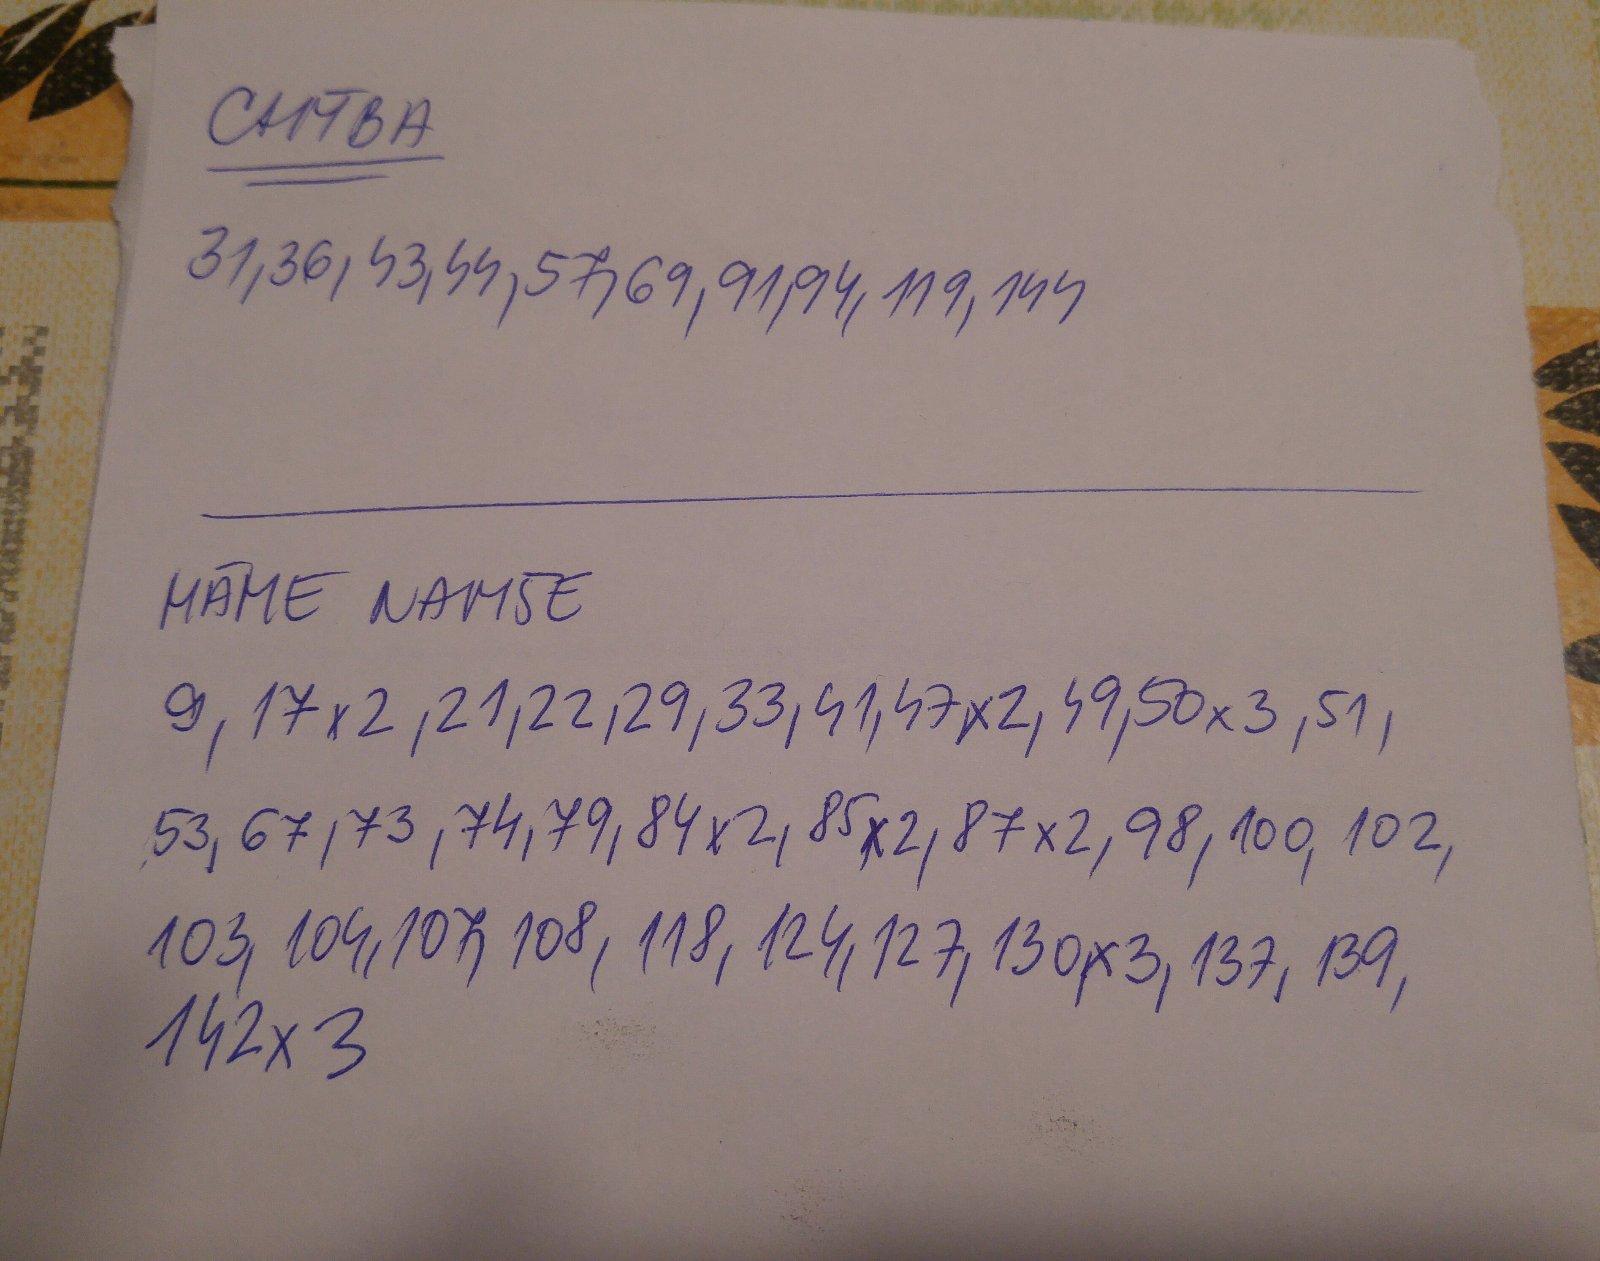 CHÝBA
31, 36, 43, 44, 57, 69, 91, 94, 119, 144
MÁME NAVYŠE
9, 17x2, 21, 22, 29, 33, 41, 47x2, 49, 50x3, 51,
53, 67, 73, 74, 79, 84x2, 85x2, 87x2, 98, 100, 102,
103, 104, 107, 108, 118, 124, 127, 130x3, 137, 139,
142x3